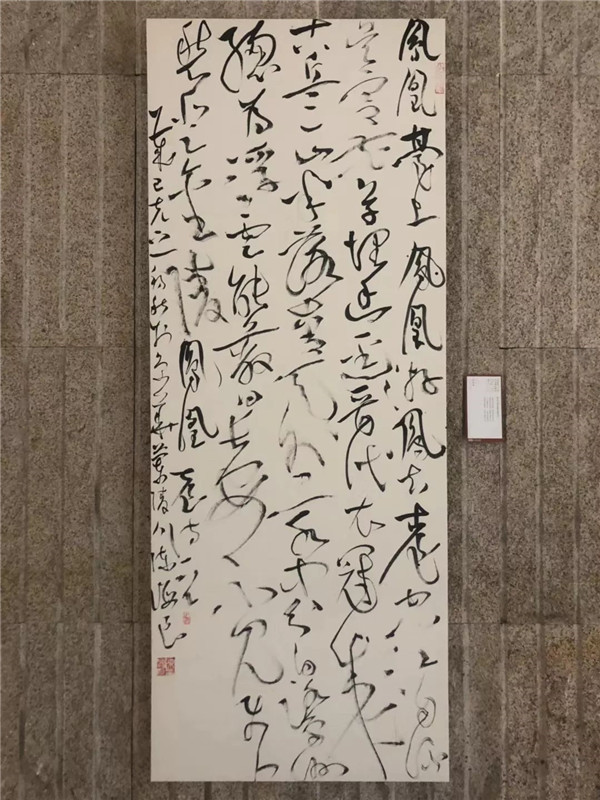 鳳凰臺上鳳凰遊鳳去臺空江自流
吳宮花草埋幽徑晉代衣冠成
古丘三山半落青天外一水中分白鷺洲
總為浮雲能蔽日長安不見使人
愁金陵鳳凰臺詩一首
歲己亥之初秋於京華蘭陵人陳海良